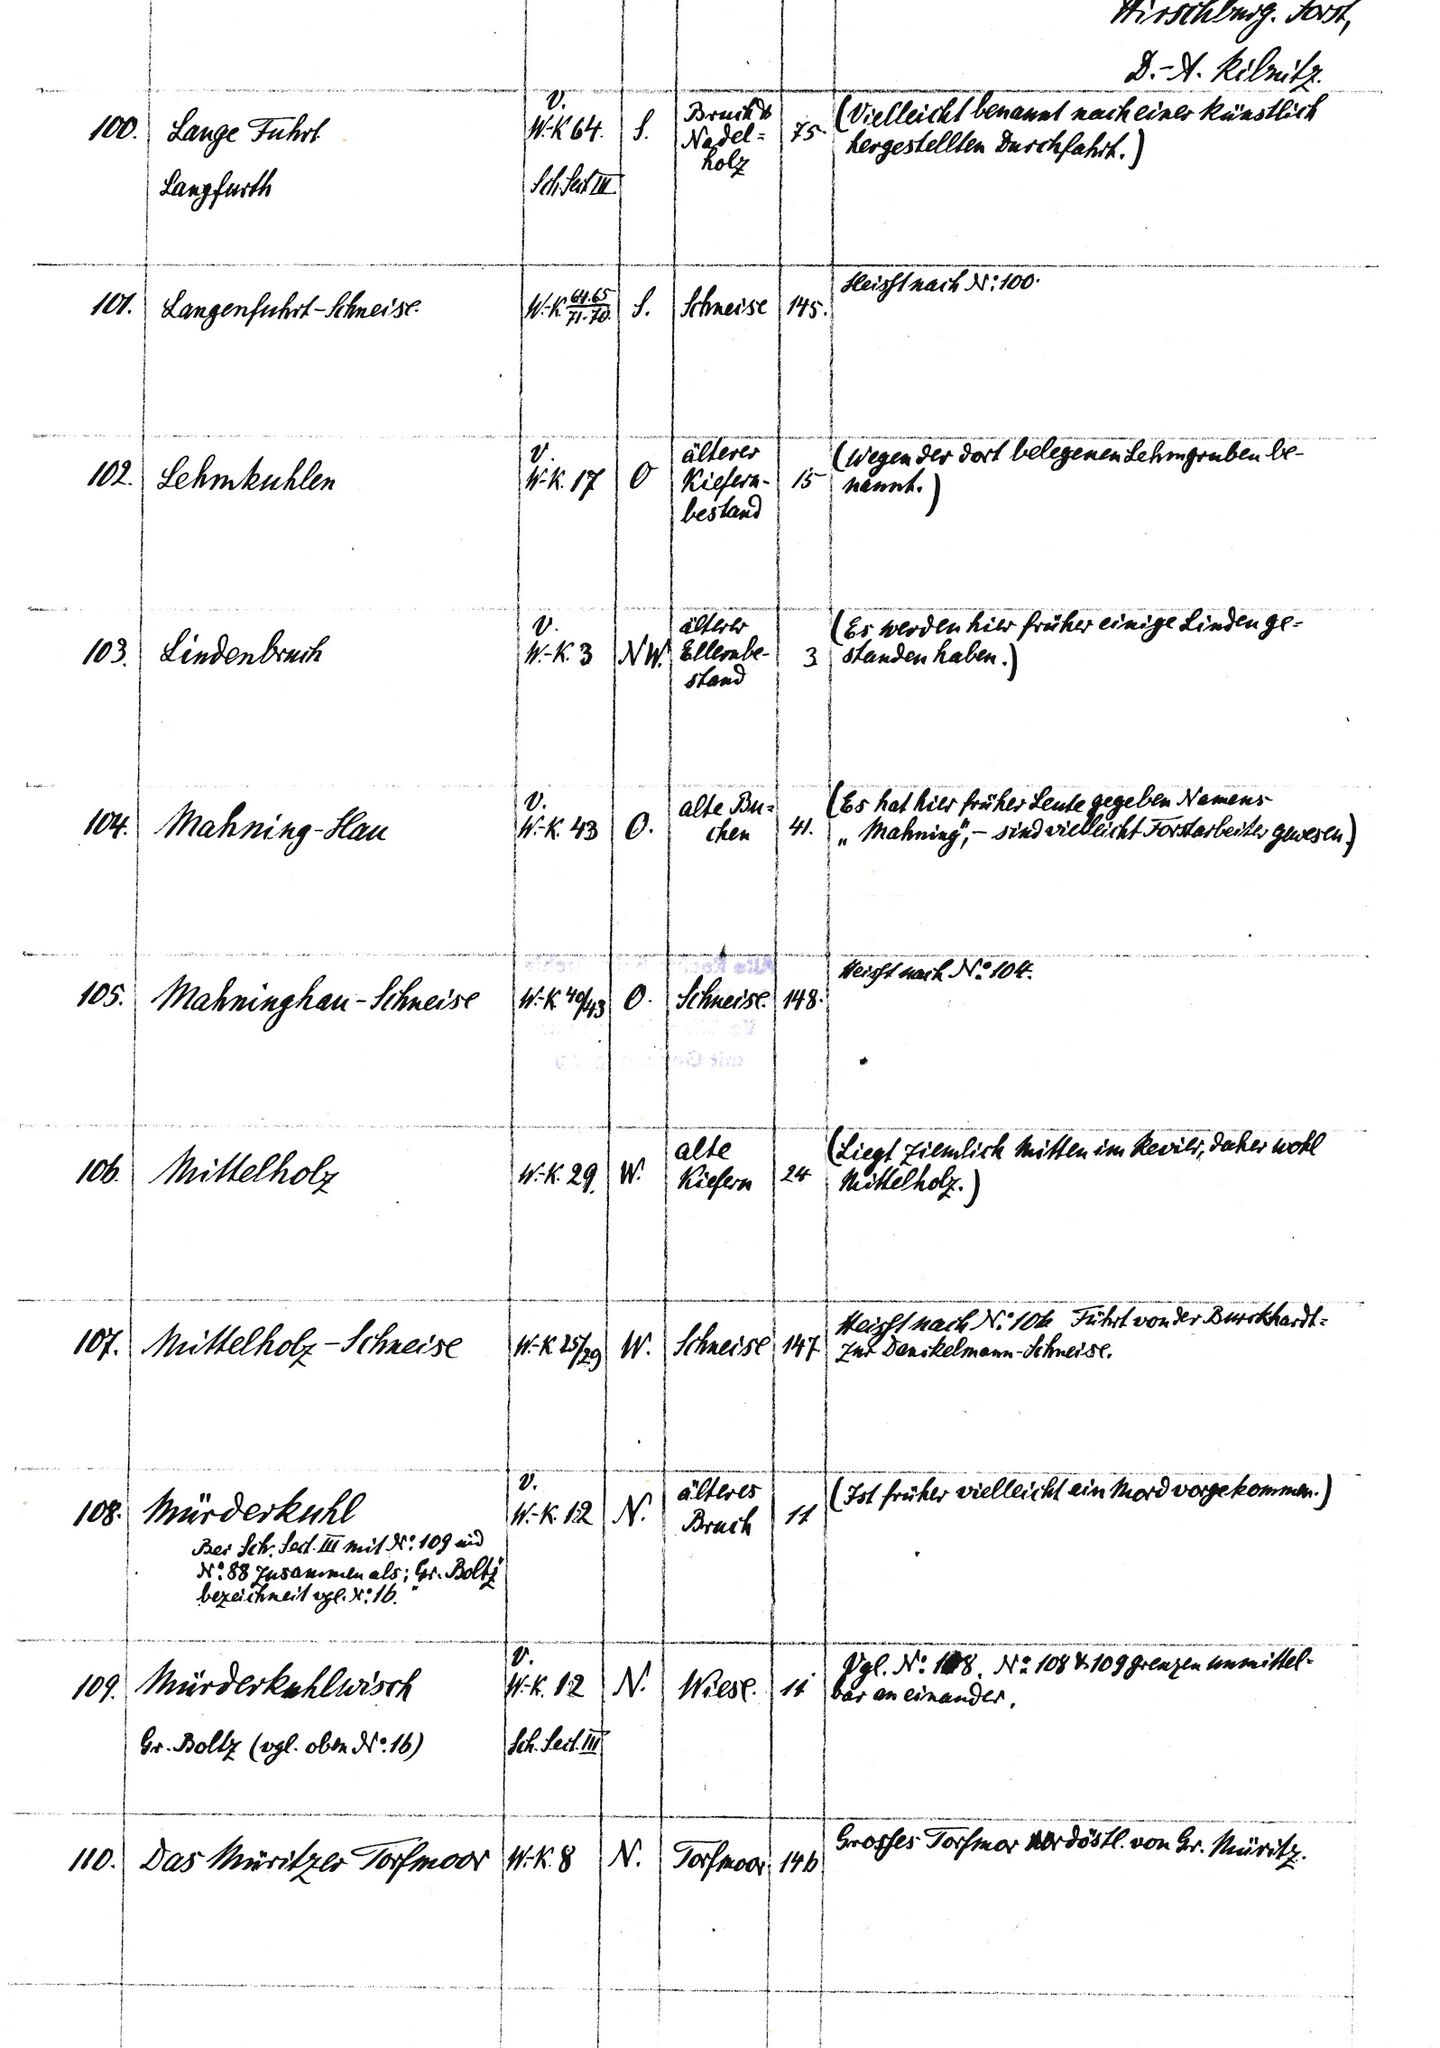 Hirschburg. Forst,
D.-A. Ribnitz.
100. Lange Fuhrt V. W.-K 64. S. Bruch & Nadel= holz 75. (Vielleicht benannt nach einer künstlich
hergestellten Durchfahrt.)
Langfurth Sch. Sect III
101. Langenfuhrt-Schneise. W.-K 64.65/71.70. S. Schneise 145. Heisst nach No: 100.
102. Lehmkuhlen V. W.-K. 17 O älterer Kiefern- bestand 15 (Wegen der dort belegenen Lehmgruben be-
nannt.)
103. Lindenbruch V. W.-K. 3 NW. älterer Ellernbe- stand 3 (Es werden hier früher einige Linden ge-
standen haben.)
104. Mahning-Hau V. W.-K. 43 O. alte Bu= chen 41. (Es hat hier früher Leute gegeben Namens
„Mahning", - sind vielleicht Forstarbeiter gewesen.)
105. Mahninghau-Schneise W.-K 40/43 O. Schneise. 148. Heisst nach No 104.
106. Mittelholz W.-K. 29. W. alte Kiefern 24 (Liegt ziemlich mitten im Revier, daher wohl
Mittelholz.)
107. Mittelholz-Schneise W.-K 25/29 W. Schneise 147. Heisst nach No: 106 Führt von der Burckhardt=
zur Danckelmann-Schneise.
108. Mürderkuhl V. W.-K. 12 N. älteres Bruch 11 (Ist früher vielleicht ein Mord vorgekommen.)
Bei Sch. Sect. III mit No: 109 und
No: 88 zusammen als: „Gr. Boltz"
bezeichneit vgl. No: 16.
109. Mürderkuhlwisch V. W.-K. 12 N. Wiese. 11 Vgl. No 108. No: 108 & 109 grenzen unmittel-
bar an einander.
Gr. Boltz (vgl. oben No: 16) Sch. Sect. III
110. Das Müritzer Torfmoor W.-K. 8 N. Torfmoor 146 Grosses Torfmoor nordöstl. von Gr. Müritz.